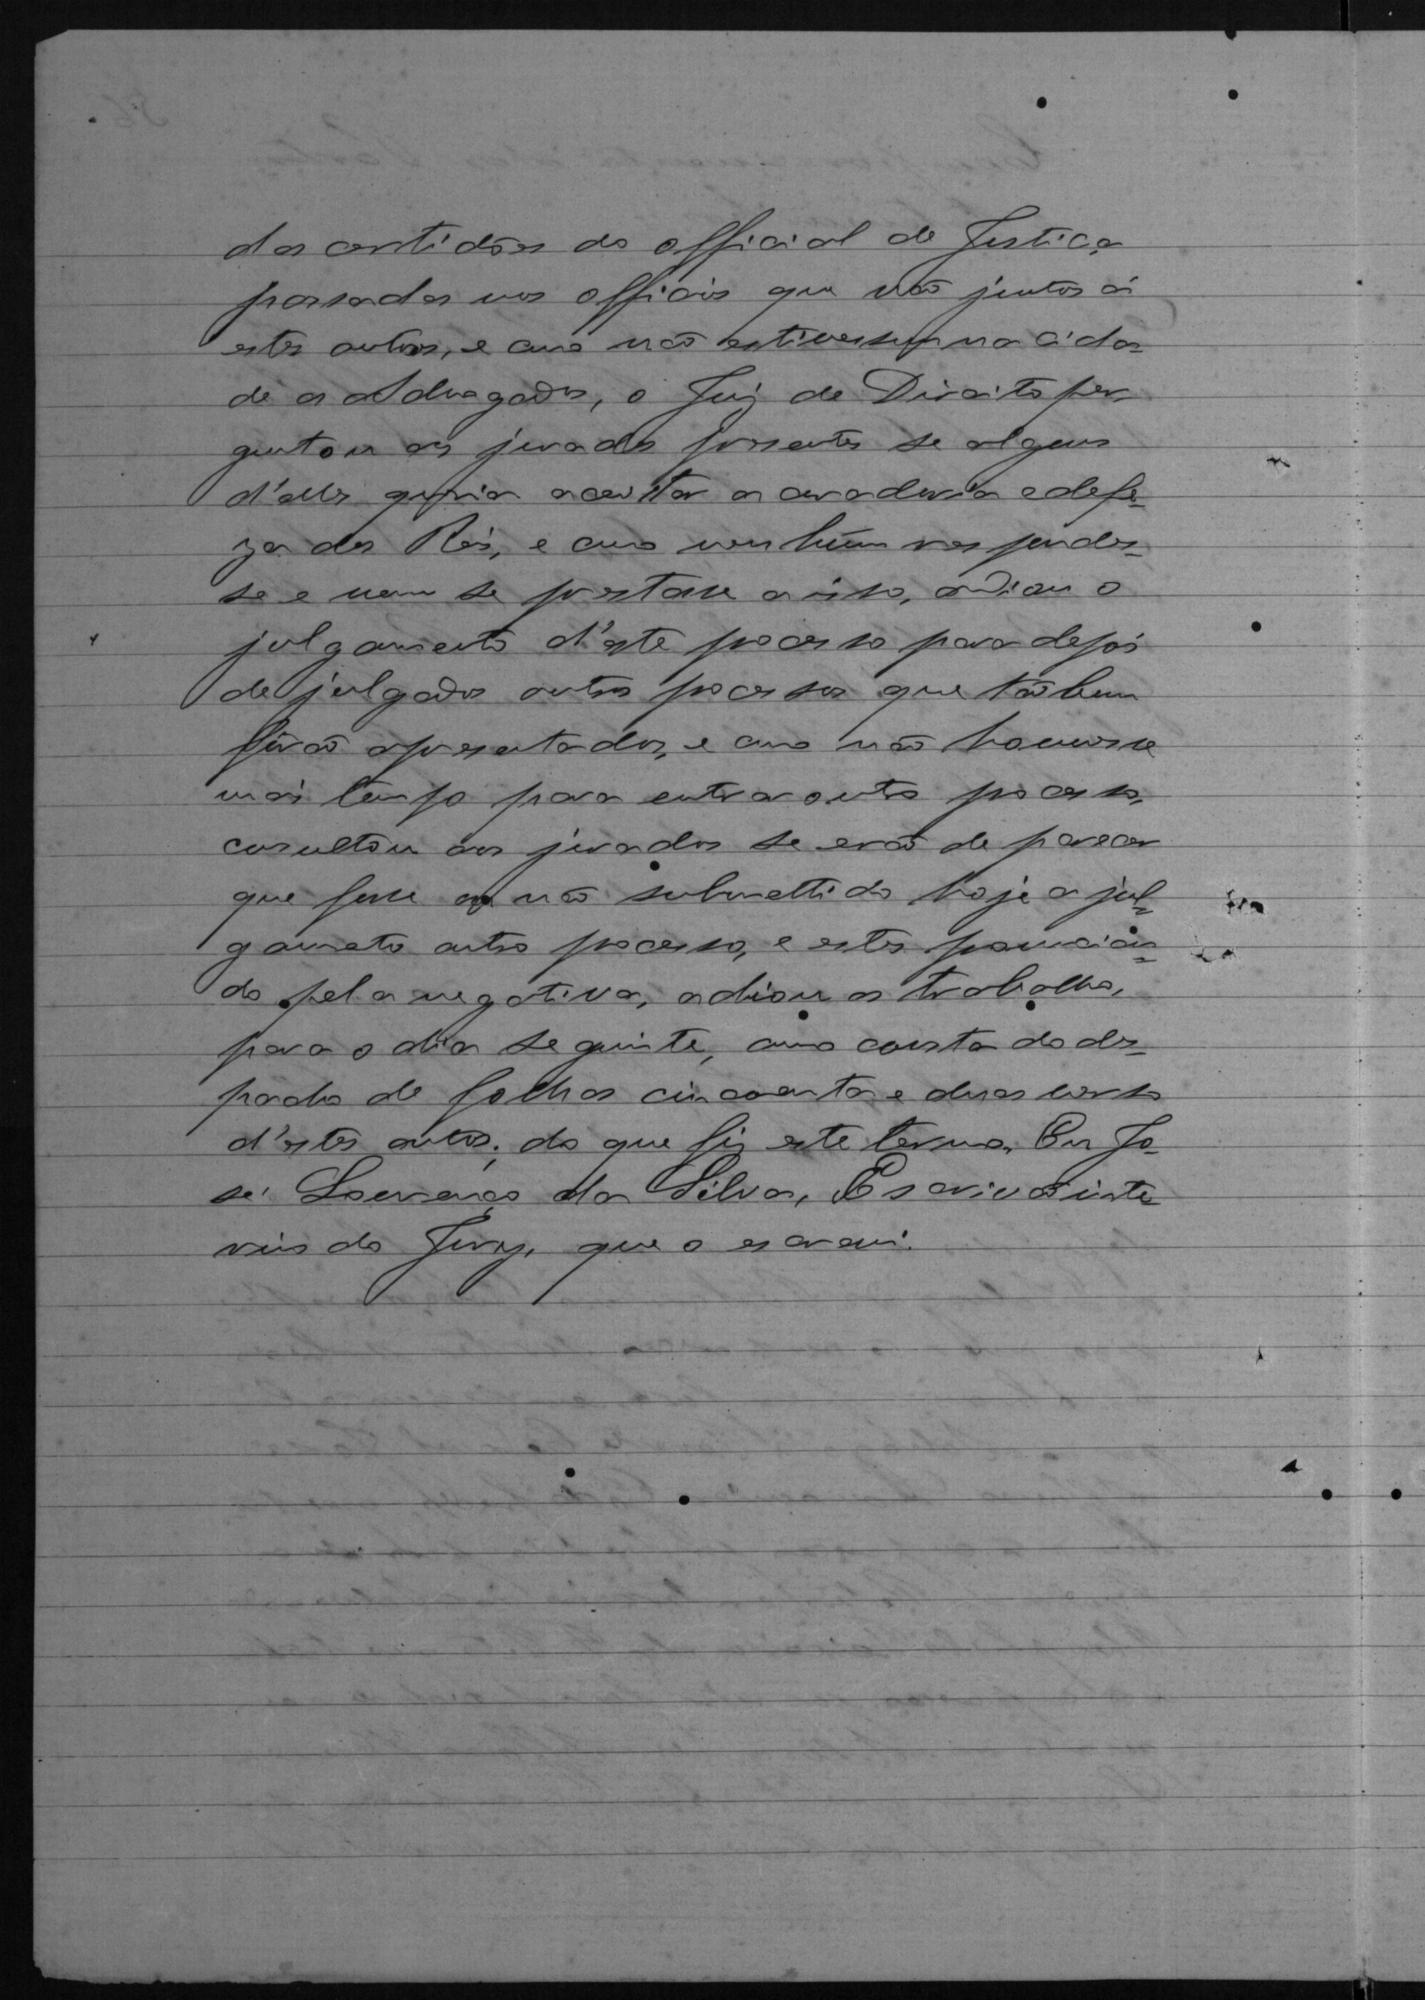 das certidões do official de Justiça
passadas nos officios que vão juntos á
estes autos, e como não estivessem na cida-
de os Advogados, o Juiz de Direito per-
guntou aos jurados presentes se algum
d'elles queria aceitar a curadoria e defe-
za dos Réos, e como nenhum respondes-
se e nem se prestasse a isso, adiou o
julgamento d'este processo para depois
de julgados outros processos que tãobem
forão apresentados, e como não houvesse
mais tempo para entrar outro processo,
consultou aos jurados se erão de parecer
que fosse ou não submettido hoje a jul-
gamento outro processo, e estes pronuncian-
do pela negativa, adiou os trabalhos,
para o dia seguinte, como consta do des-
pacho de folhas cincoenta e duas verso
d'estes autos; do que fiz este termo. Eu Jo-
sé Lourenço da Silva, Escrivão inte-
rino do Jury, que o escrevi.